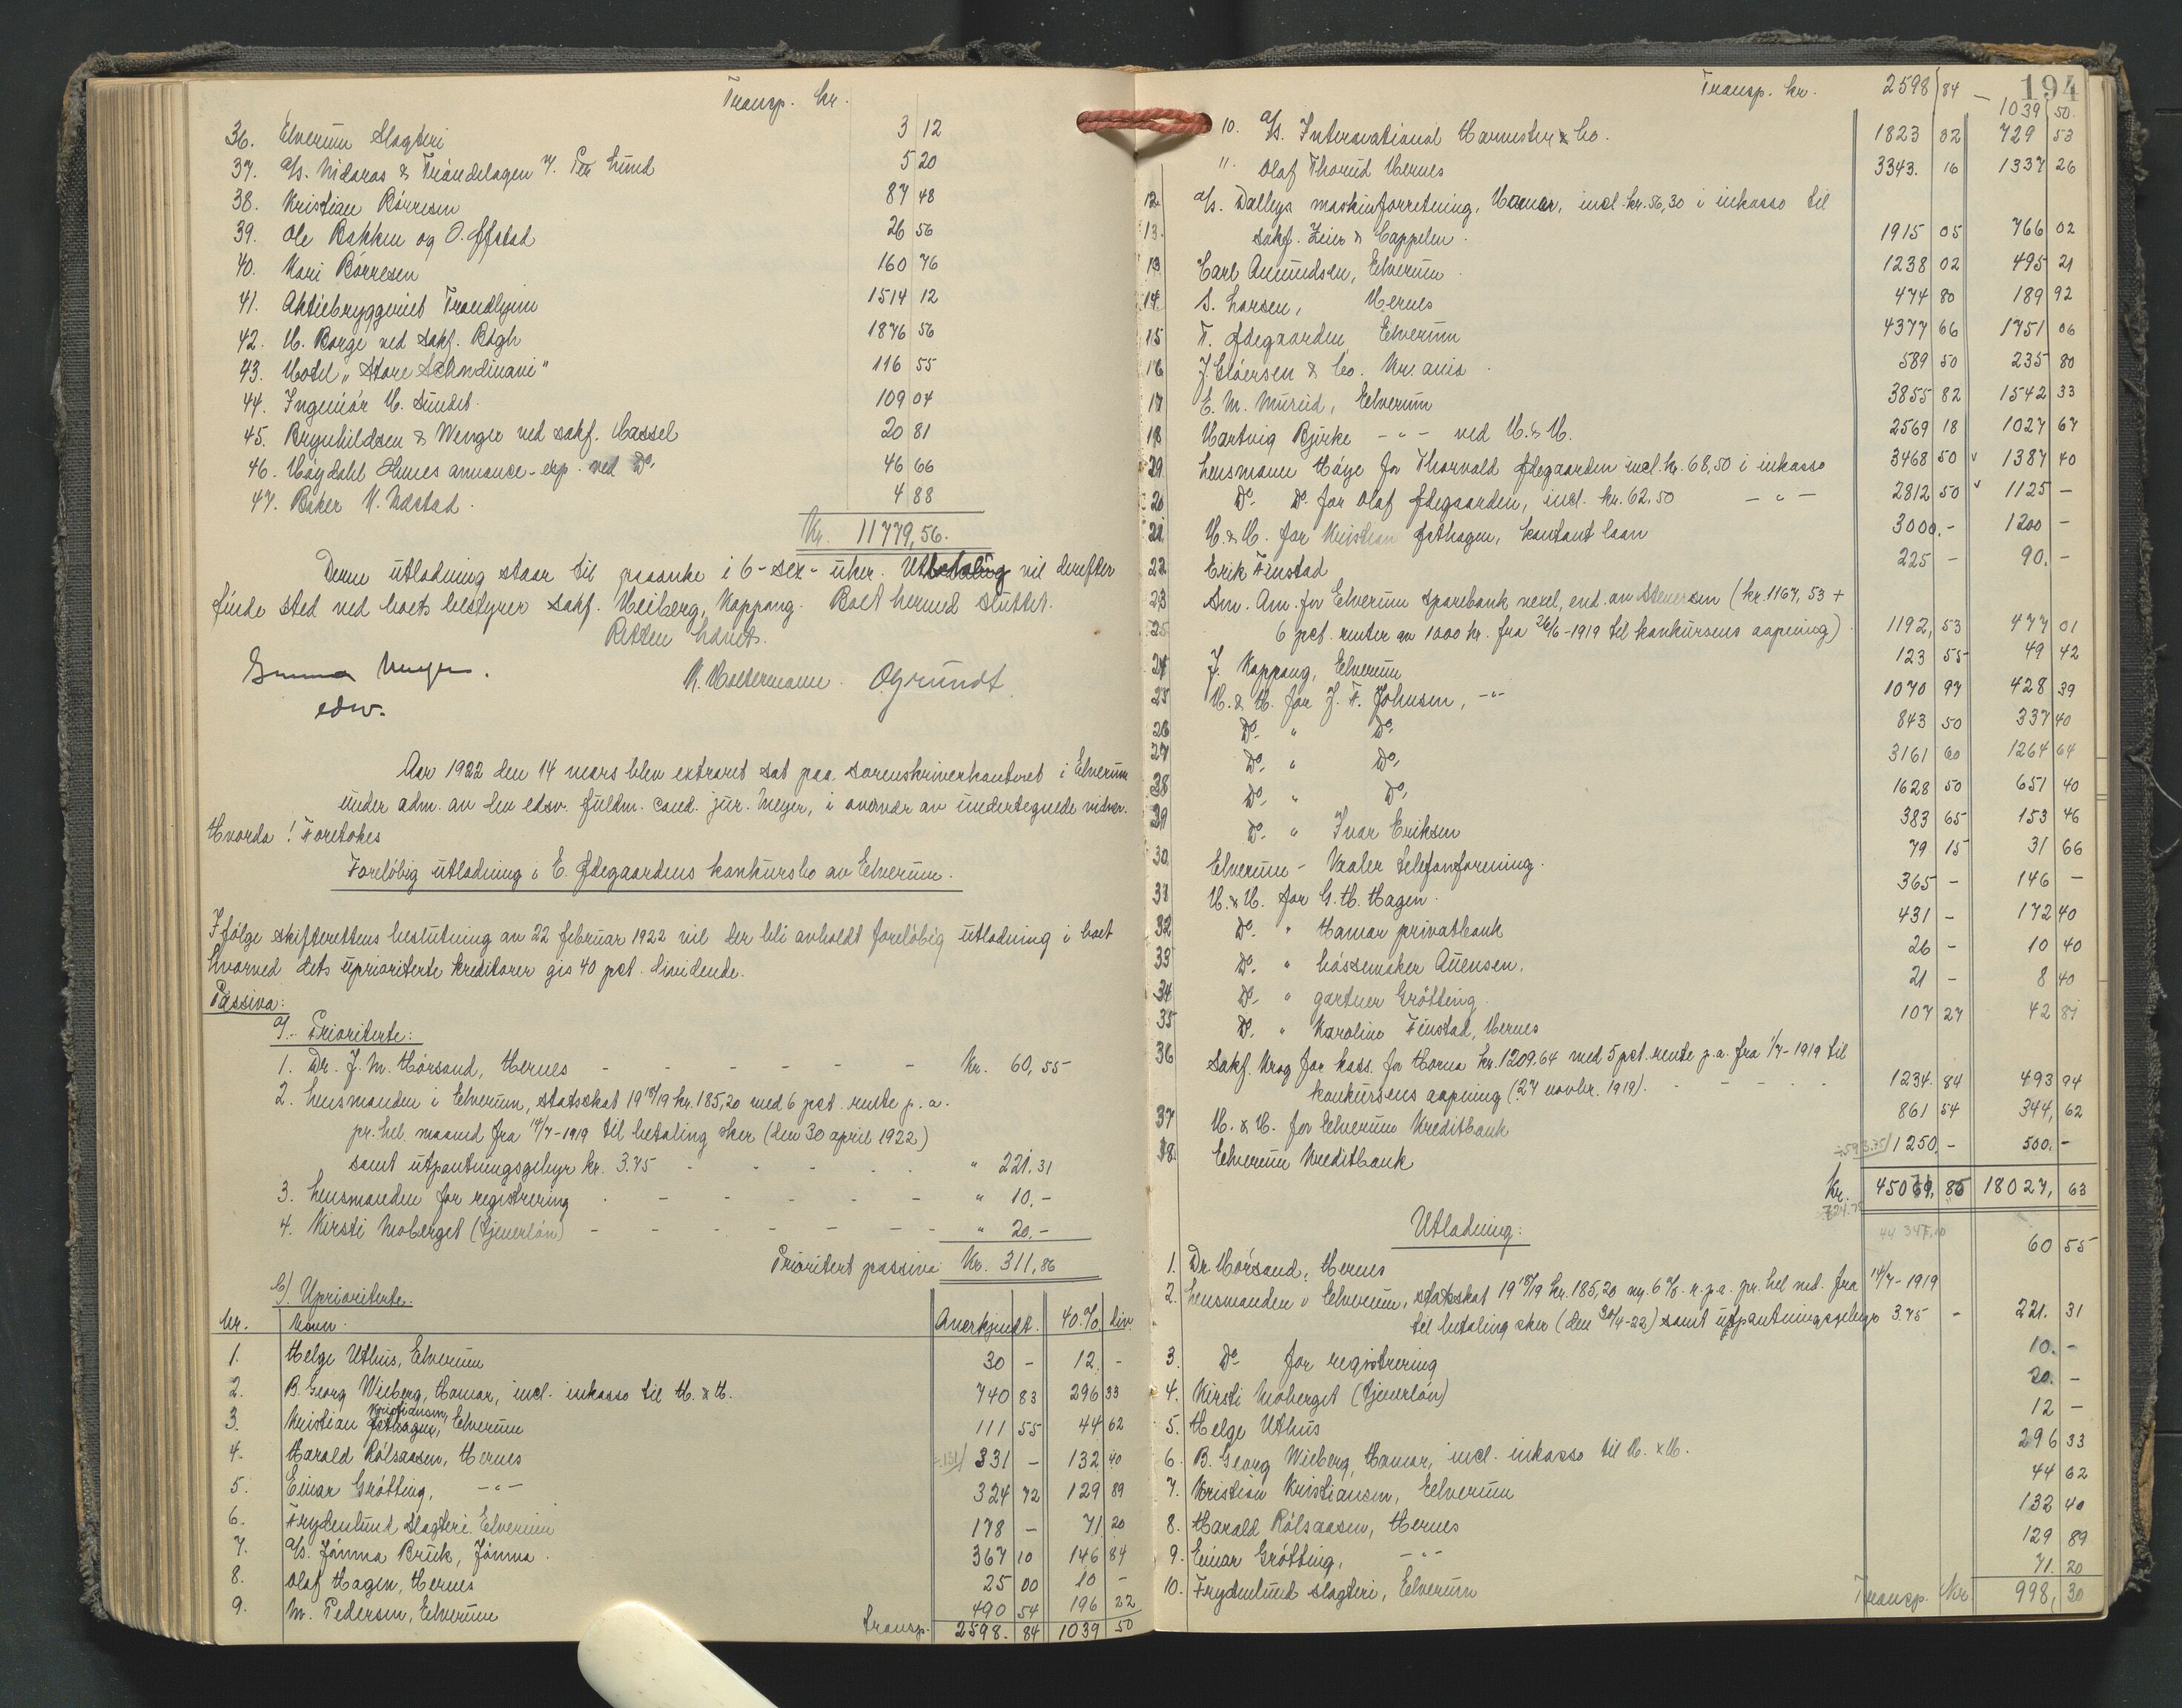 Transp. kr.
36. Elverum Slagteri 3 12
37. A/S. Nidaros & Trøndelagen v. Per Lund 5 20
38. Kristian Børresen 87 48
39. Ole Bakken og O. Øfstad 26 56
40. Kari Børresen 160 76
41. Aktiebryggeriet Trondhjem 1514 12
42. H. Borge ved sakf. Bøgh 1876 56
43. Hotel „Store Skandinavi" 116 55
44. Ingeniør H. Sundet. 109 04
45. Brynhildsen & Wenger ved sakf. Hassel 20 81
46. Høydahl Ohmes annonce-exp. ved Do, 46 66
47. Baker N. Udstad. 4 88
Kr. 11779,56.
Denne utlodning staar til paaanke i 6-sex- uker. Utbetaling vil derefter
finde sted ved boets bestyrer sakf. Heiberg, Koppang. Boet herved sluttet.
Retten hævet.
Gunnar Meyer. N. Holtermann. O Grundt.
edsv.
Aar 1922 den 14 mars blev extraret sat paa sorenskriverkontoret i Elverum
under adm. av den edsv. fuldm. cand. jur. Meyer, i overvær av undertegnede vidner.
Hvorda! Foretokes
Foreløbig utlodning i E. Ødegaardens konkursbo av Elverum.
Ifølge skifterettens beslutning av 22 februar 1922 vil der bli avholdt foreløbig utlodning i boet
hvorved dets uprioriterte kreditorer gis 40 pct. dividende.
Passiva:
a/. Prioriterte:
1. Dr. J. M. Hørsand, Hernes - - - - - - Kr. 60,55
2. Lensmanden i Elverum, statsskat 1918/19 kr. 185,20 med 6 pct. rente p. a.
pr. hel maaned fra 14/7-1919 til betaling sker (den 30 april 1922)
samt utpantningsgebyr kr. 3.75 - - - - " 221,31
3. Lensmanden for registrering - - - - - " 10.-
4. Kirsti Moberget (tjenerløn) - - - - - - " 20.-
Prioritert passiva Kr. 311,86
b/. Uprioriterte.
Nr. Navn. Anerkjendt. 40 % div.
1. Helge Uthus, Elverum 30 - 12. -
2. B. Georg Wieberg, Hamar, incl. inkasso til H. & H. 740 83 296 33
Kristiansen,
3. Kristian Øthagen, Elverum 111 55 44 62
4. Harald Rølsaasen, Hernes 331 - 132 40
5. Einar Grøtting, -"- 324 72 129 89
6. Frydenlund Slagteri Elverum 178 - 71 20
7. A/S. Jømna Bruk, Jømna. 367 10 146 84
8. Olaf Hagen, Hernes 25 00 10 -
9. M. Pedersen, Elverum 490 54 196 22
transp. 2598. 84 1039 50
194
Transp. kr. 2598 84 - 1039 50.
10. A/S. International Harvester & Co. 1823 02 729 53
11. Olaf Thorud Hernes 3343. 16 1337 26
12 A/S. Dallegs maskinforretning, Hamar, incl. kr. 56,30 i inkasso til
13. sakf. Zeier & Cappelen. 1915 05 766 02
13 Carl Amundsen, Elverum. 1238 02 495 21
14. S. Larsen, Hernes 474 80 189 92
15 F. Ødegaarden, Elverum 4377 66 1751 06
16 J. Cløersen & Co. Kr.ania. 589 50 235 80
17 E. M. Mureid, Elverum 3855 82 1542 33
18 Hartvig Bjørke -"- ved H. & H. 2569 18 1027 67
29. Lensmann Høye for Thorvald Ødegaarden incl. kr. 68,50 i inkasso 3468 50 v 1387 40
20 Do. Do. for Olaf Ødegaarden, incl. kr. 62.50 -"- 2812 50 v 1125 -
21 H. & H. for Kristian Øthagen, kontant laan 3000.- 1200 -
22 Erik Finstad 225 - 90. -
23 Am. Am. for Elverum Sparebank vexel, end. av Steversen (kr. 1167,53 +
25 6 pct. renter av 1000 kr. fra 26/6-1919 til konkursens aapning) 1192, 53 477 01
24 J. Koppang, Elverum 123 55 49 42
25 H. & H. for J. F. Johnsen, -"- 1070 97 428 39
26 Do. " Do. 843 50 337 40
27 Do. " Do. 3161 60 1264 64
28 Do. " Do. 1628 50 651 40
29 Do. " Ivar Eriksen 383 65 153 46
30. Elverum-Vaaler telefonforening. 79 15 31 66
31 H. & H. for G. H. Hagen. 365 - 146 -
32 Do. " Hamar privatbank 431 - 172 40
33 Do. " Låssemaker Auensen. 26 - 10 40
34 Do. " gartner Grøtting. 21 - 8 40
35 Do. " Karoline Finstad, Hernes 107 27 42 81
36 Sakf. Krog for kass. for Horna kr. 1209.64 med 5 pct. rente p.a. fra 1/7-1919 til
konkursens aapning (27 novbr. 1919). - - - - 1234. 84 493 94
37 H. & H. for Elverum Kreditbank 861 54 344, 62
38. Elverum Kreditbank 1250. - 500. -
Kr. 45071, 85 18027, 63
44 347,10
Utlodning:
1. Dr. Hørsand, Hernes 60 55
2. Lensmanden i Elverum, statsskat 1918/19 kr. 185,20 m. 6 % r. p.a. pr. hel md. fra 14/7-1919
til betaling sker (den 30/4-22) samt utpantningsgebyr 3.75 - 221. 31
3. Do for registrering 10. -
4. Kirsti Moberget (tjenerløn) 20. -
5. Helge Uthus 12 -
6. B. Georg Wieberg, Hamar, incl. inkasso til H. & H. 296 33
7. Kristian Kristiansen, Elverum 44 62
8. Harald Rølsaasen, Hernes 132 40
9. Einar Grøtting, -"- 129 89
10. Frydenlund slagteri, Elverum 71. 20
Transp. Kr. 998, 30